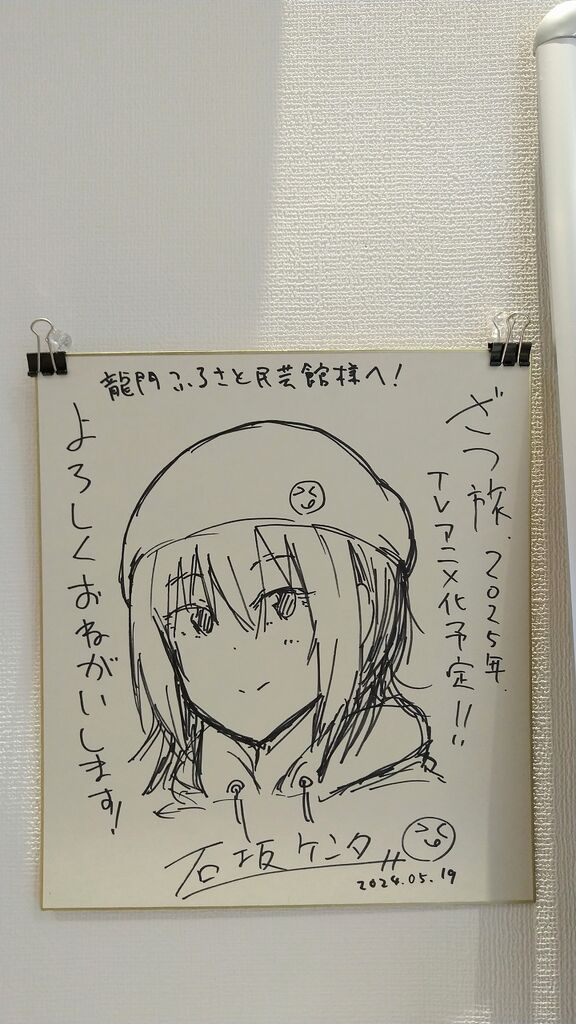 龍門ふるさと民芸館様へ!
ざつ旅、2025年、
TVアニメ化予定!!
よろしくおねがいします!
石坂ケンタ
2024.05.19